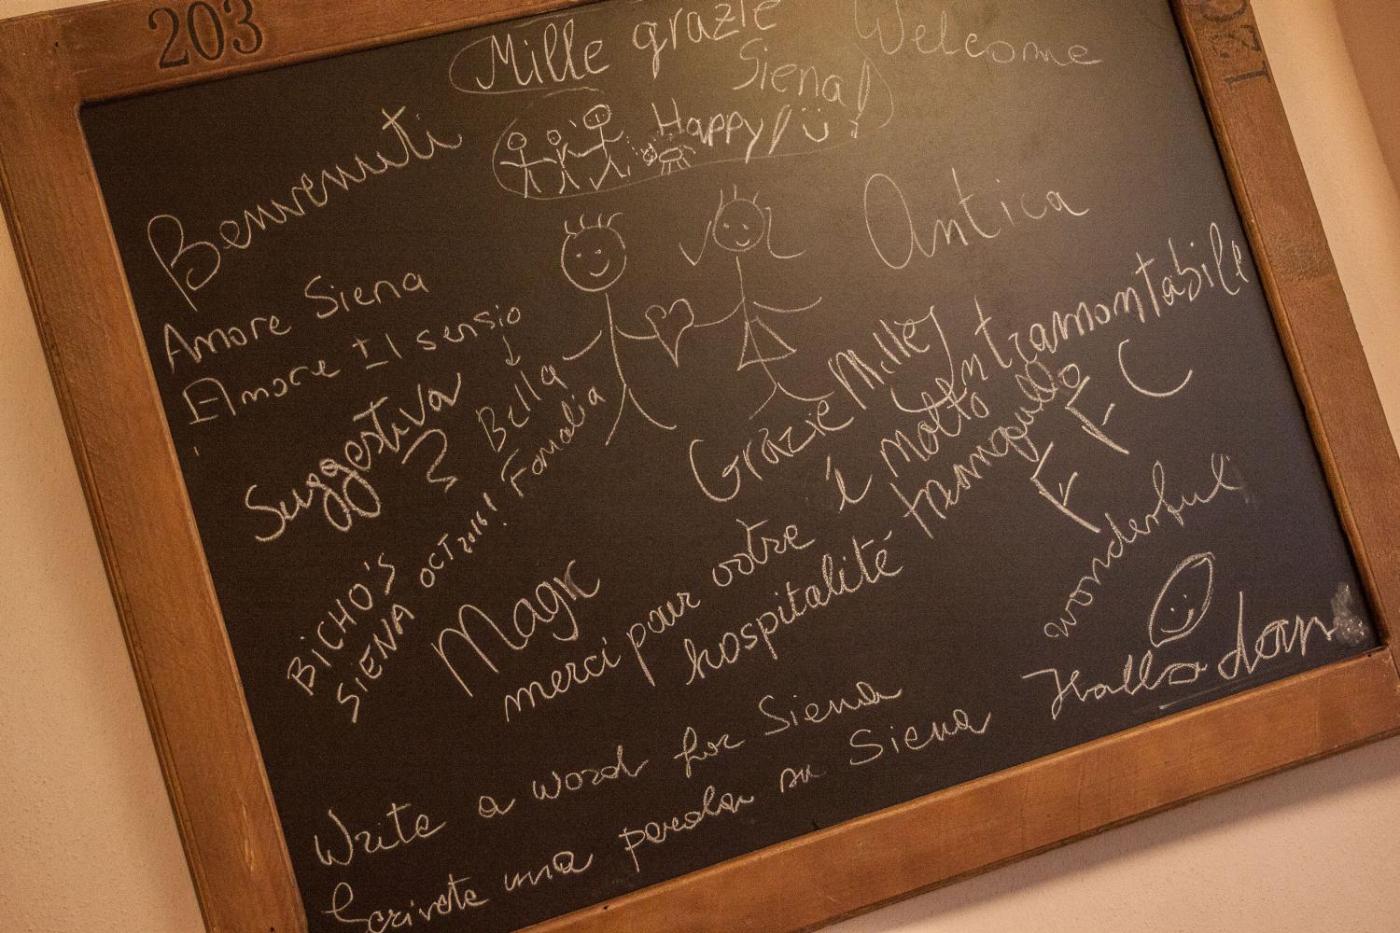 203
120
Mille grazie
Siena!
Welcome
Happy!
Benvenuti
Antica
Amore Siena
Amore Il sensio
Suggestiva
Bella
Grazie Mille
è molto
tranquillo
intramontabile
E F C
BICHO'S
SIENA OCT 2016!
Magic
merci pour votre
hospitalité
wonderful
Write a word for Siena
Scrivete una parola su Siena